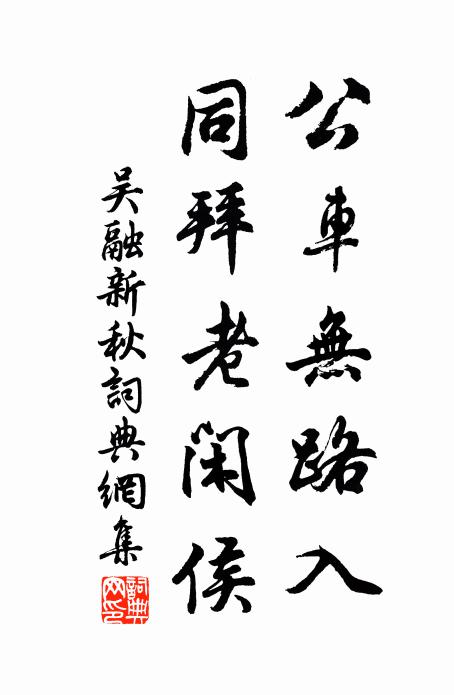 公車無路入
同拜老閑侯
吳融新秋詞典網集
詞典網印